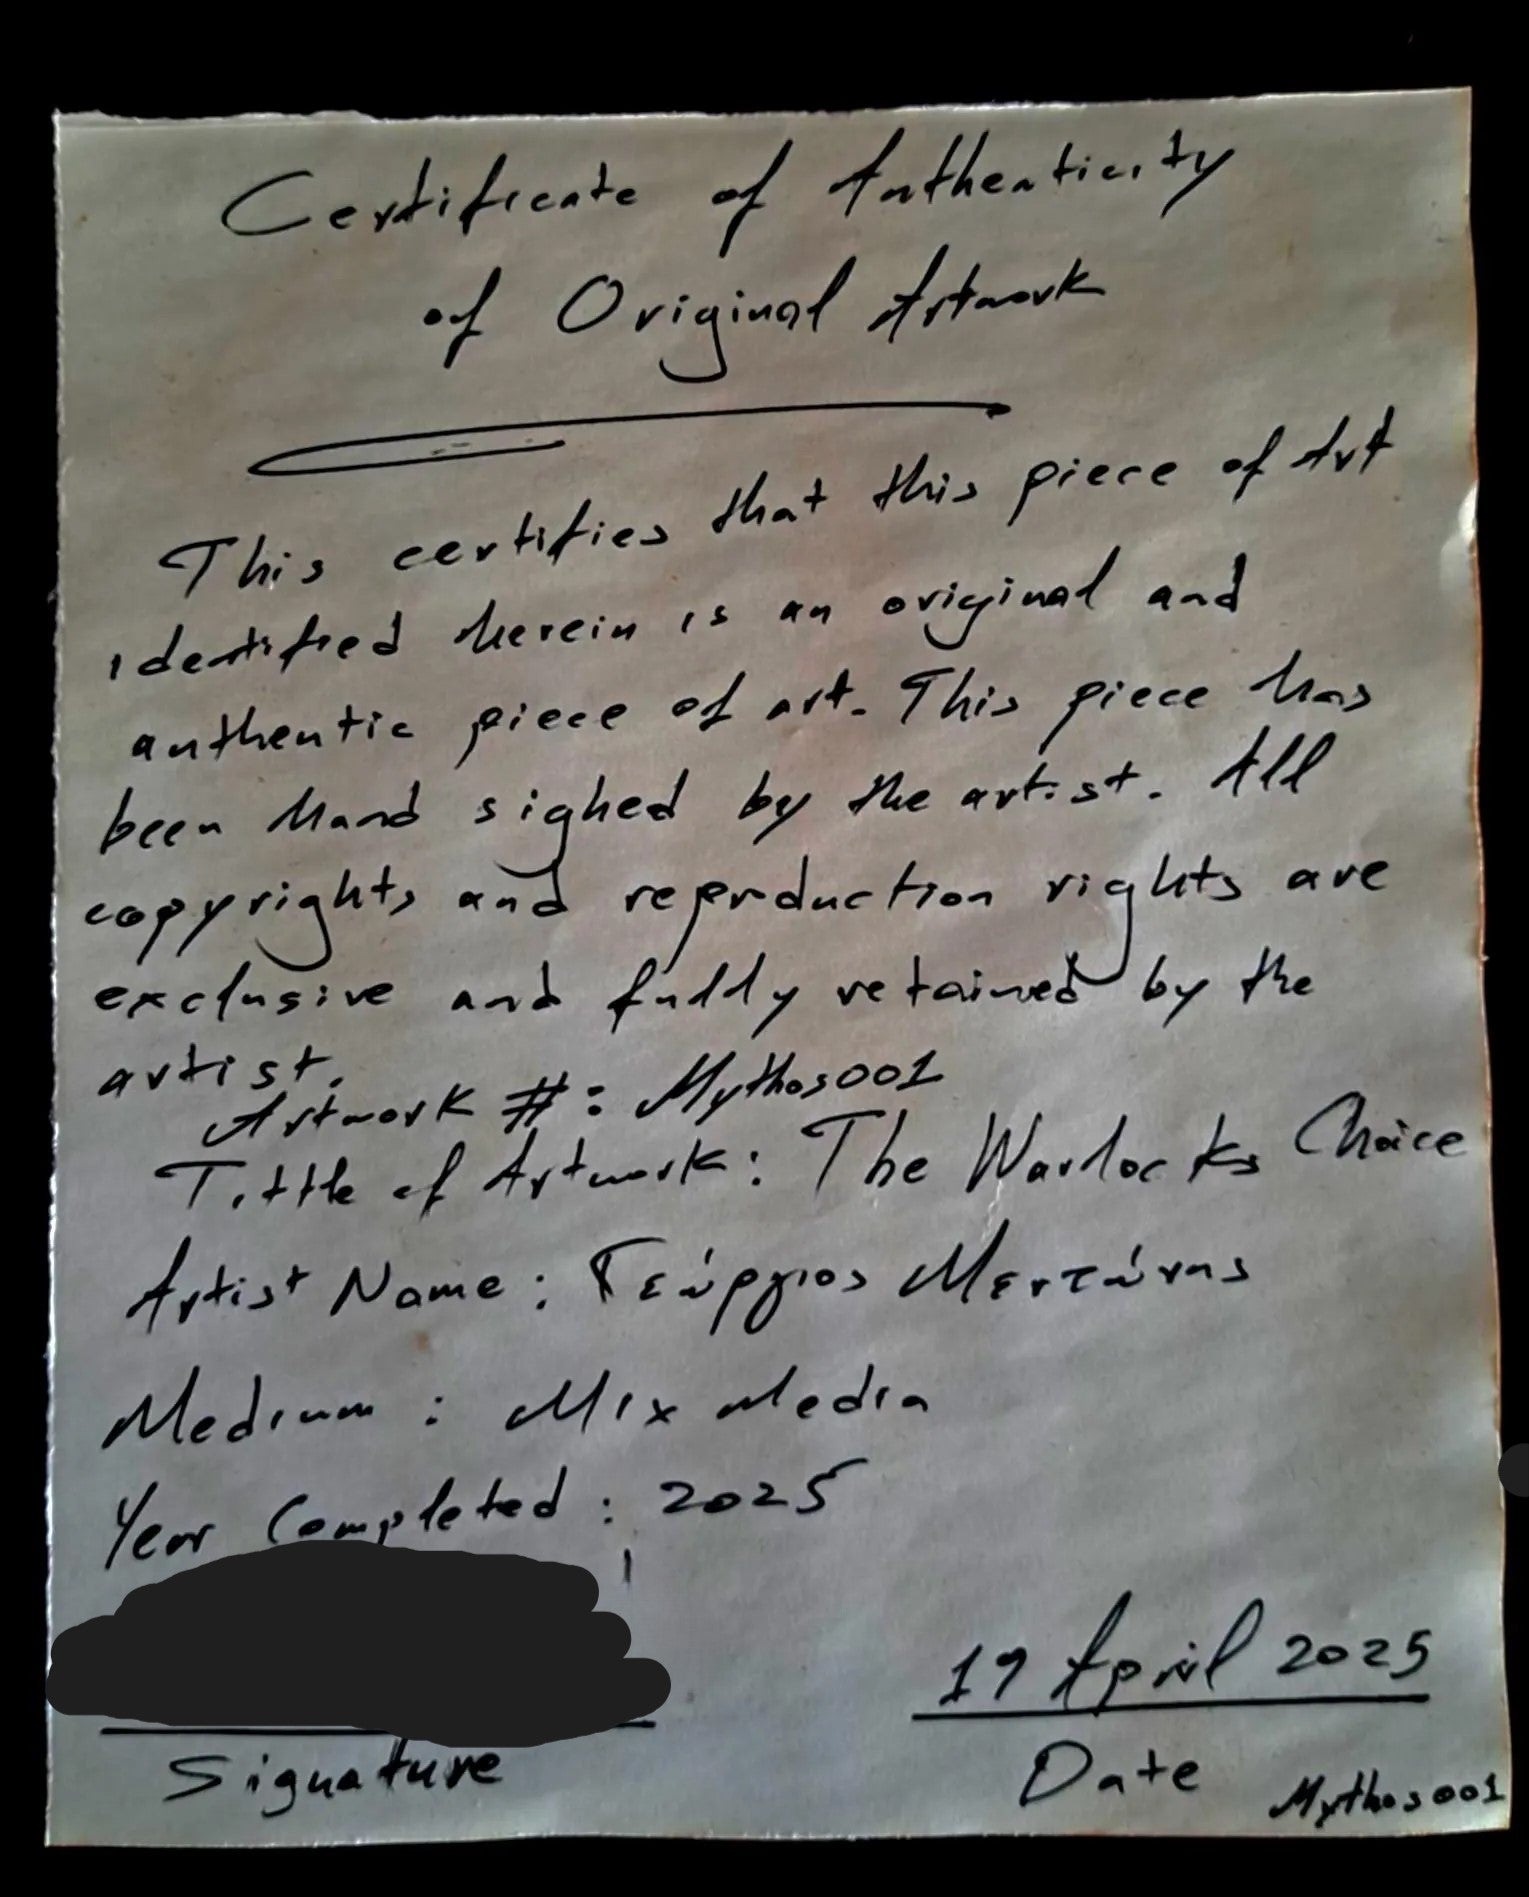 Certificate of Authenticity
of Original Artwork
This certifies that this piece of Art
identified herein is an original and
authentic piece of art. This piece has
been Hand sighed by the artist. All
copyrights and reprduction rights are
exclusive and fully retained by the
artist.
Artwork #: Mythos001
Tittle of Artwork: The Warlocks Choice
Artist Name: Γεώργιος
Medium: Mix Media
Year Completed: 2025
19 April 2025
Signature
Date
Mythos001